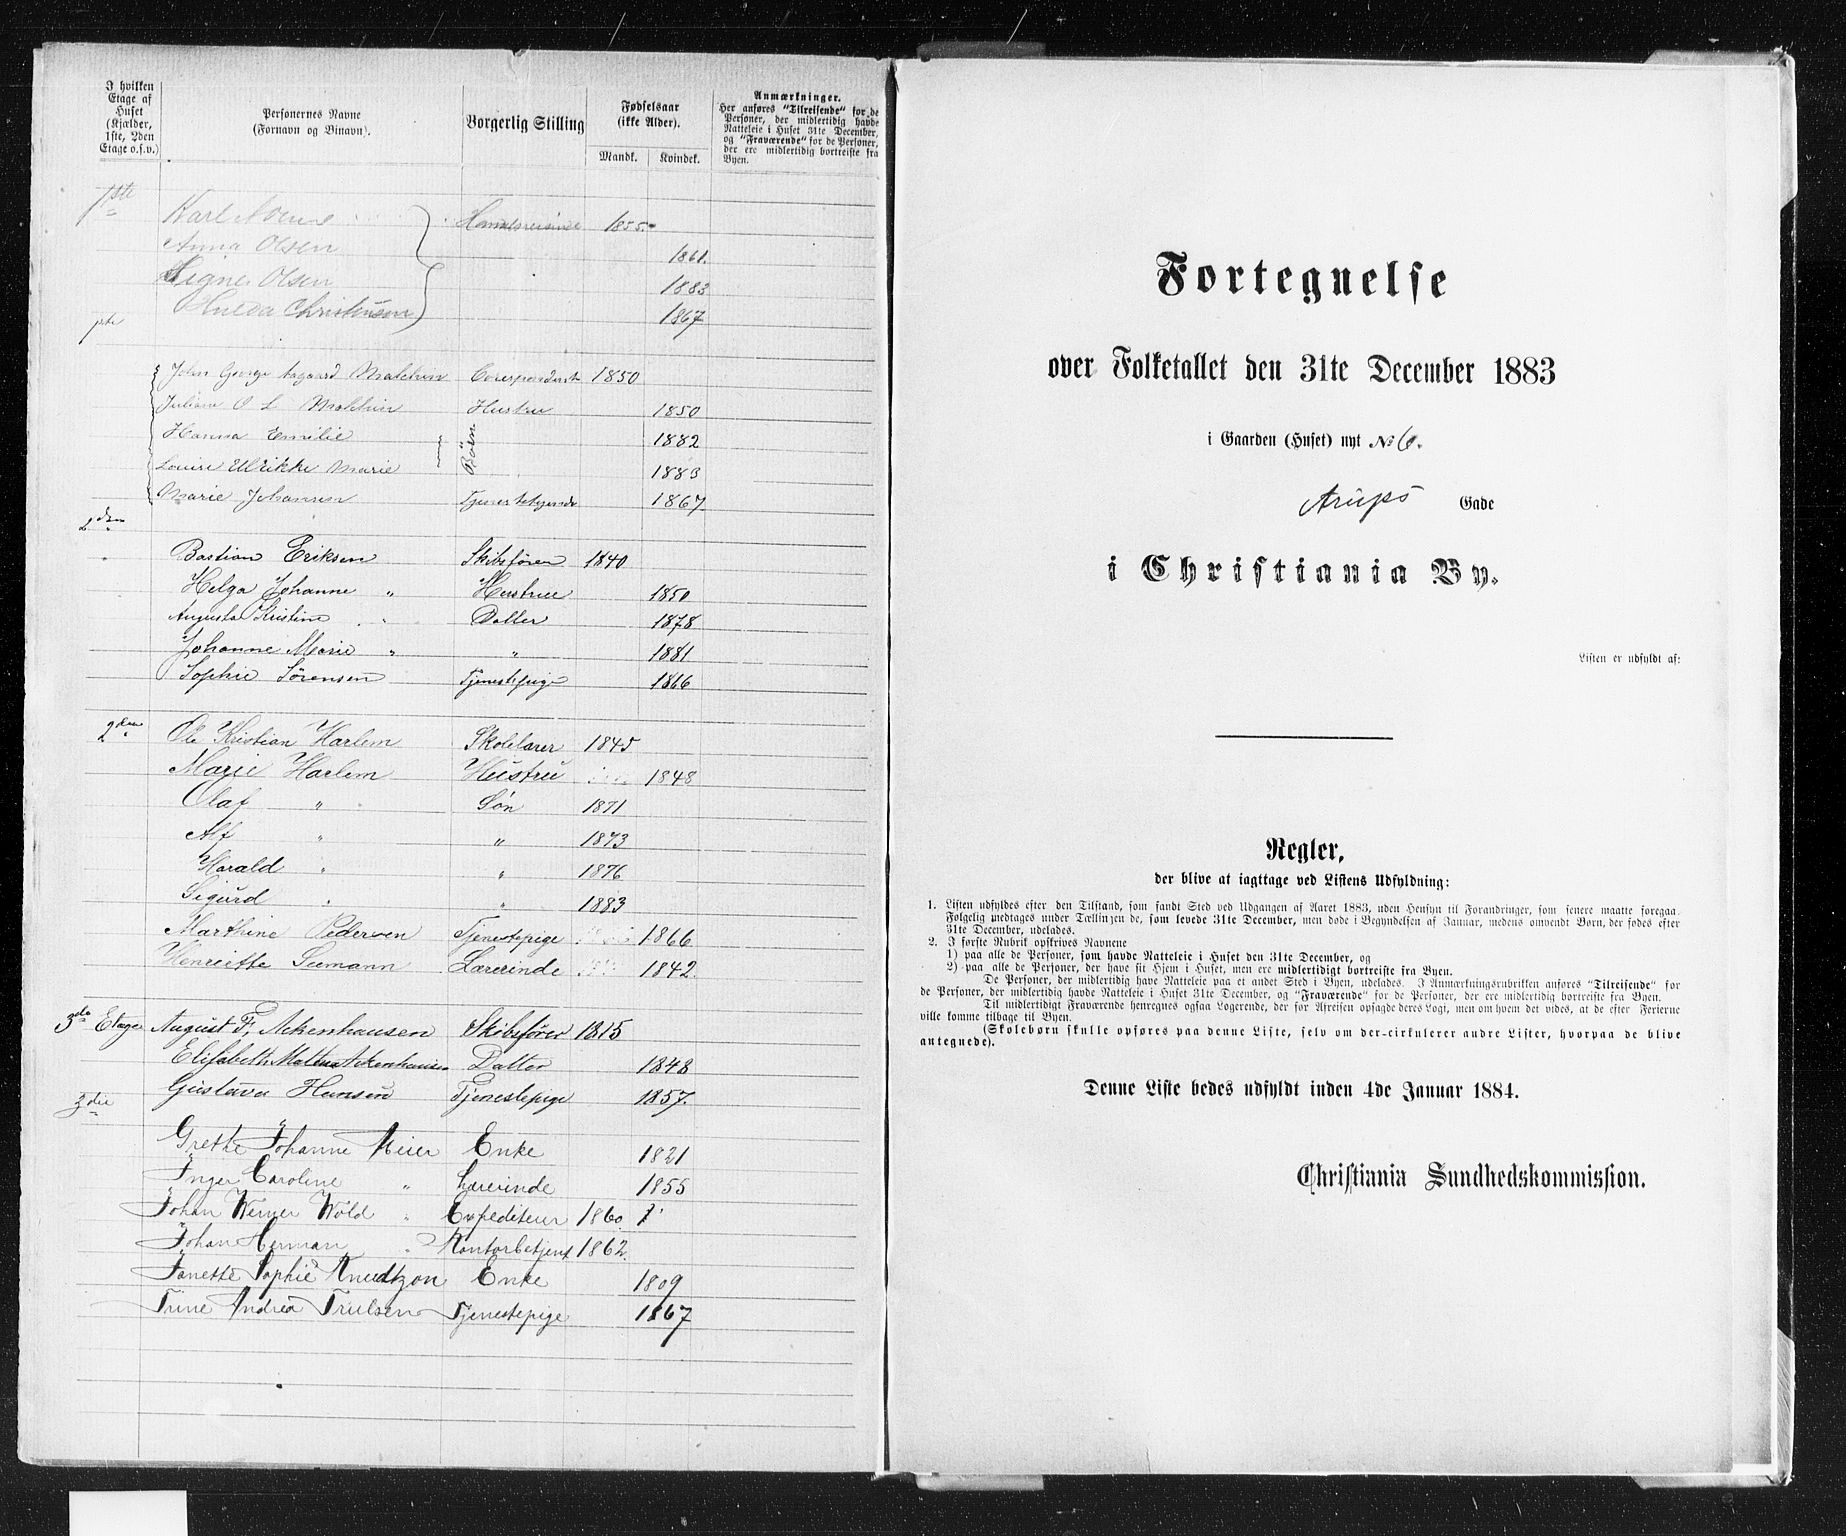 I hvilken Etage af Huset (Kjælder, 1ste, 2den Etage o.s.v.)
Personernes Navne (Fornavn og Binavn).
Borgerlig Stilling
Fødselsaar (ikke Alder).
Mandk. Kvindek.
Anmærkninger.
Her anføres "Tilreisende" for de
Personer, der midlertidig havde
Natteleie i Huset 31te December,
og "Fraværende" for de Personer,
der ere midlertidig bortreiste fra
Byen.
1ste Karl 1855
Anna Olsen 1861.
Signe Olsen 1883
Hulda Christensen 1867
1ste
John George Aagaard Correspondent 1850
Juliane O L Hustru 1850
Hanna Emilie Børn 1882
Louise Ulrikke Marie 1883
Marie Johansen 1867
2den
Bastian Eriksen Skibsfører 1840
Helga Johanne " Hustru 1850
Augusta Kristine " Datter 1878
Johanne Marie " " 1881
Sophie Sørensen Tjenestepige 1866
2den Ole Kristian Harlem Skolelærer 1845
Marie Harlem Hustru 1848
Olaf " Søn 1871
Alf " " 1873
Harald " " 1876
Sigurd " " 1883
Marthine Pedersen Tjenestepige 1866
Henriette Seemann Lærerinde 1842
3die Etage August F. Ackenhausen Skibsfører 1815
Elisabeth Ackenhausen Datter 1848
Gustava Hansen Tjenestepige 1857.
3die
Grethe Johanne Meier Enke 1821
Inger Caroline " Lærerinde 1855
Johan Werner Wold " Expediteur 1860.
Johan Herman " Kontorbetjent 1862.
Janette Sophie Knudtzon Enke 1809
Trine Andrea Trulsen Tjenestepige 1867
Fortegnelse
over Folketallet den 31te December 1883
i Gaarden (Huset) nyt No 6.
Arups Gade
i Christiania By.
Listen er udfyldt af:
Regler,
der blive at iagttage ved Listens Udfyldning:
1. Listen udfyldes efter den Tilstand, som fandt Sted ved Udgangen af Aaret 1883, uden Hensyn til Forandringer, som senere maatte foregaa.
Følgelig medtages under Tællingen de, som levede 31te December, men døde i Begyndelsen af Januar, medens omvendt Børn, der fødes efter
31te December, udelades.
2. I første Rubrik opskrives Navnene
1) paa alle de Personer, som havde Natteleie i Huset den 31te December, og
2) paa alle de Personer, der have sit Hjem i Huset, men ere midlertidigt bortreiste fra Byen.
De Personer, der midlertidig have Natteleie paa et andet Sted i Byen, udelades. I Anmærkningsrubrikken anføres "Tilreisende" for
de Personer, der midlertidig havde Natteleie i Huset 31te December, og "Fraværende" for de Personer, der ere midlertidig bortreiste fra Byen.
Til midlertidigt Fraværende henregnes ogsaa Logerende, der før Afreisen opsagde deres Logi, men om hvem det vides, at de efter Ferierne
ville komme tilbage til Byen.
(Skolebørn skulle opføres paa denne Liste, selv om der cirkulerer andre Lister, hvorpaa de blive
antegnede).
Denne Liste bedes udfyldt inden 4de Januar 1884.
Christiania Sundhedskommission.